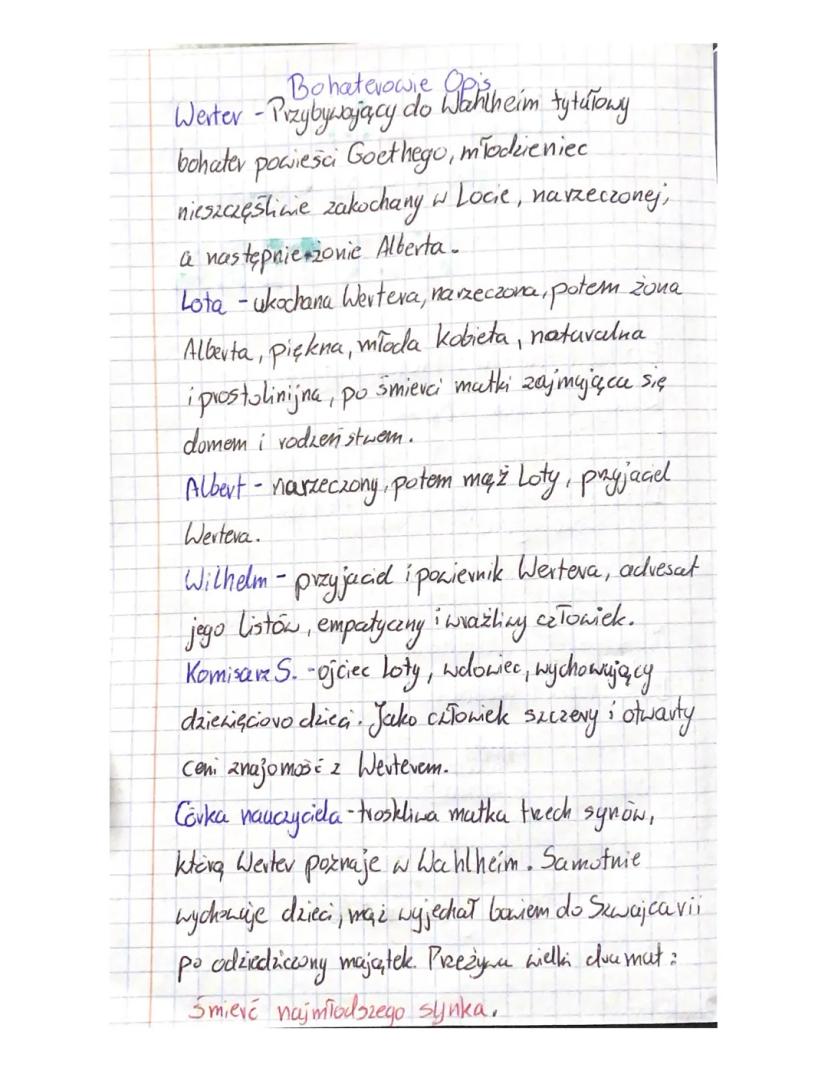 Bohaterowie Opis
Werter - Przybywający do Wahlheim tytułowy
bohater powieści Goethego, młodzieniec
nieszczęśliwie zakochany w Locie, narzeczonej,
a następnie żonie Alberta.
Lota - ukochana Wertera, narzeczona, potem żona
Alberta, piękna, młoda kobieta, naturalna
i prostolinijna, po śmierci matki zajmująca się
domem i rodzeństwem.
Albert - narzeczony, potem mąż Loty, przyjaciel
Wertera.
Wilhelm - przyjaciel i powiernik Wertera, adresat
jego listów, empatyczny i wrażliwy człowiek.
Komisarz S. - ojciec Loty, wdowiec, wychowujący
dziewięcioro dzieci. Jako człowiek szczery i otwarty
ceni znajomość z Werterem.
Córka nauczyciela - troskliwa matka trzech synów,
którą Werter poznaje w Wahlheim. Samotnie
wychowuje dzieci, mąż wyjechał bowiem do Szwajcarii
po odziedziczony majątek. Przeżywa wielki dramat:
śmierć najmłodszego synka.